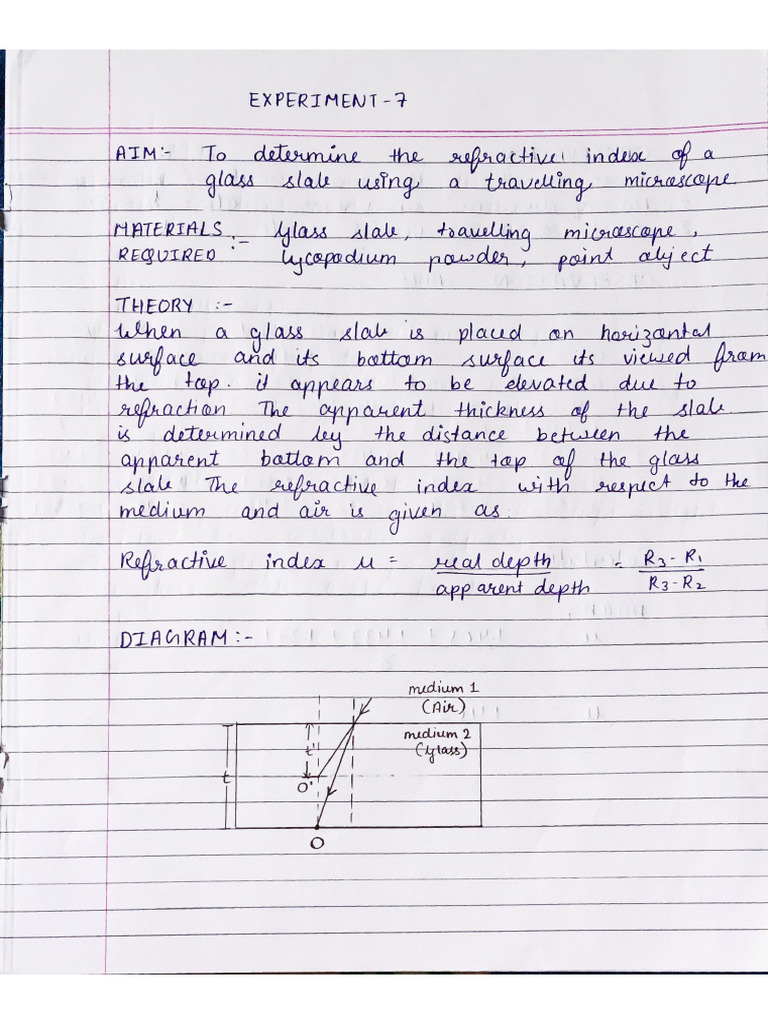 EXPERIMENT-7
AIM:- To determine the refractive index of a
glass slab using a travelling microscope
MATERIALS :- Glass slab, travelling microscope,
REQUIRED lycopodium powder, point object
THEORY :-
When a glass slab is placed on horizontal
surface and its bottom surface its viewed from
the top. it appears to be elevated due to
refraction The apparent thickness of the slab
is determined by the distance between the
apparent bottom and the top of the glass
slab The refractive index with respect to the
medium and air is given as:
Refractive index u = real depth / apparent depth = R3-R1 / R3-R2
DIAGRAM:-
medium 1
(Air)
medium 2
(Glass)
t'
t
O'
O